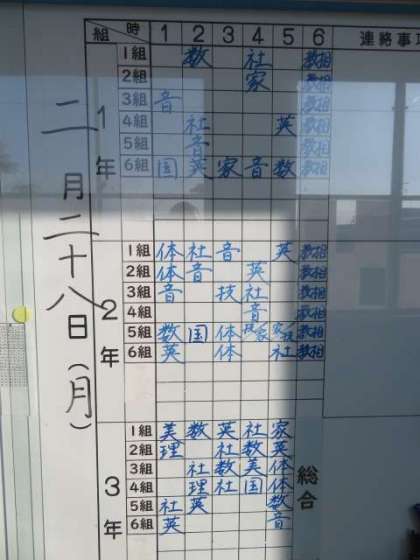 二月二十八日(月)
組 時 1 2 3 4 5 6 連絡事項
1年
1組 数 社 教相
2組 家 教相
3組 音 教相
4組 社 英 教相
5組 音 教相
6組 国 英 家 音 数 教相
2年
1組 体 社 音 英 教相
2組 体 音 英 教相
3組 音 技 社 教相
4組 音 教相
5組 数 国 体 技家 家技 教相
6組 英 体 社 教相
3年
1組 美 数 英 社 家
2組 理 社 数 英
3組 社 数 美 体
4組 理 社 国 体
5組 社 英 数
6組 英 音
総合